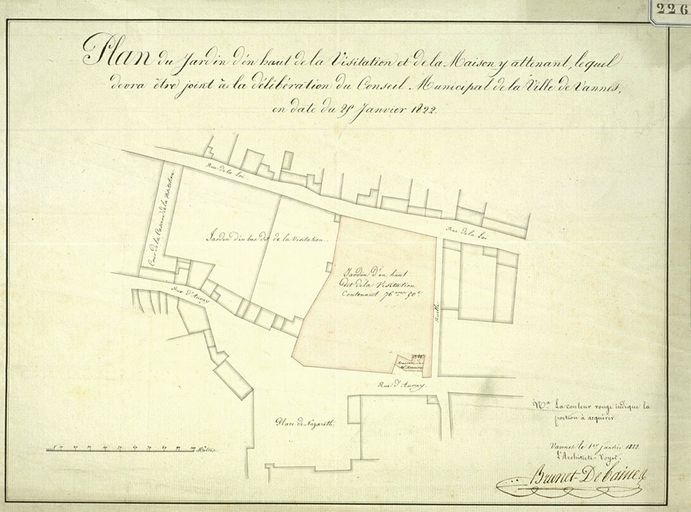 226
Plan du Jardin d'en haut de la Visitation et de la Maison y attenant, lequel
devra être joint à la délibération du Conseil Municipal de la Ville de Vannes,
en date du Janvier 1822.
Rue de la Loi
Rue de la Loi
Cour de la Caserne de la Visitation
Jardin d'en bas dit de la Visitation.
Jardin d'en haut
dit de la Visitation
Contenant 76
Ruelle
Rue d'Auray
Rue d'Auray
Place de Nazareth
Mètres
Na. La couleur rouge indique la
portion à acquérir
Vannes le 1er Janvier 1822
L'Architecte Voyer,
Brunet-Debaines